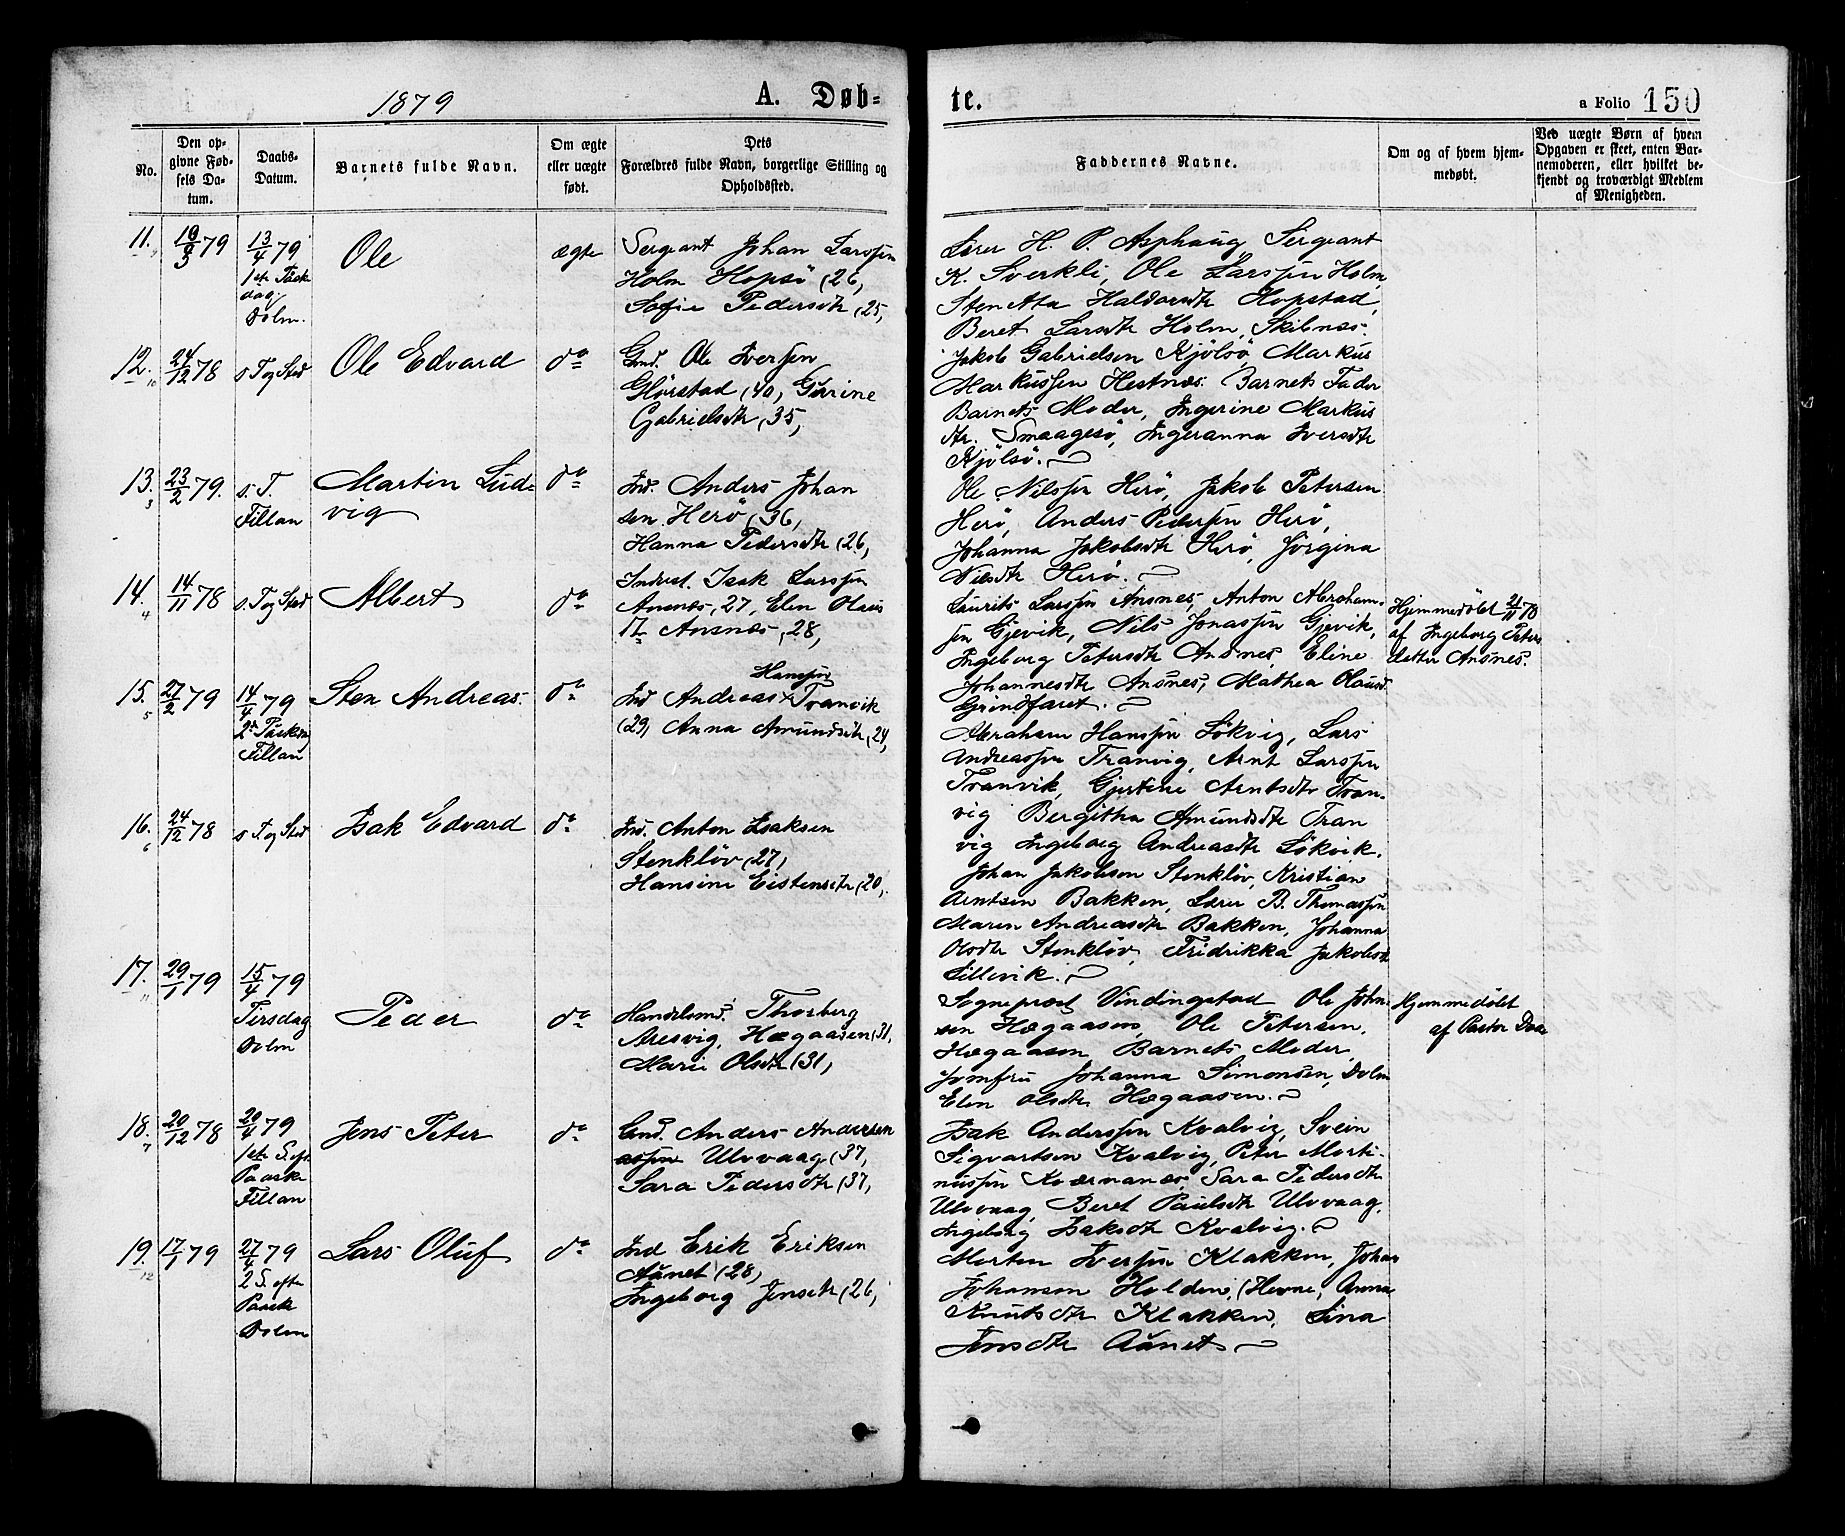 1879
A. Døb-
te.
a Folio 150
No.
Den op-
givne Fød-
sels Da-
tum.
Daabs-
Datum.
Barnets fulde Navn.
Om ægte
eller uægte
født.
Dets
Forældres fulde Navn, borgerlige Stilling og
Opholdssted.
Faddernes Navne.
Om og af hvem hjem-
medøbt.
Ved uægte Børn af hvem
Opgaven er skeet, enten Bar-
nemoderen, eller hvilket be-
kjendt og troværdigt Medlem
af Menigheden.
11.
79
13/4 79
1ste Paask
dag
Dolm.
Ole
ægte
Sergeant Johan Larssen
Holm Hopsö (26,
Sofie Pedersdtr (25,
Lærer H. P. Asphaug Sergeant
K. Sverkli, Ole Larssen Holm,
Stenetta Haldorsdtr Hopstad,
Beret Larsdtr Holm, Skibnæs.
12.
10
24/12 78
s. T og Sted
Ole Edvard
do
Gmd. Ole Iversen
Glørstad (40, Gurine
Gabrielsdtr (35,
Jakob Gabrielsen Kjölsö, Markus
Markussen Hestnæs. Barnets Fader
Barnets Moder, Ingerine Markus
dtr. Smaagesö, Ingeranna Iversdtr
Kjölsö.
13.
3
23/2 79.
s. T.
Fillan
Martin Lud-
vig
do
Ind. Anders Johan
sen Herö (36,
Hanna Pedersdtr (26,
Ole Nilssen Herö, Jakob Petersen
Herö, Anders Pedersen Herö,
Johanna Jakobsdtr Herö, Jörgina
Nilsdtr Herö.
14.
4
14/11 78
s. T og Sted
Albert
do
Inderst. Isak Larssen
Ansnæs, 27, Elen Olaus
dtr Ansnæs, 28,
Laurits Larssen Ansnes, Anton Abraham-
sen Gjevik, Nils Jonassen Gjevik,
Ingeborg Petersdtr Ansnes, Eline
Johannesdtr Ansnes, Mathea Olausd
Grindfaret.
Hjemmedöbt 21/11 78
af Ingeborg Peters
datter Ansnes.
15.
5
27/2 79
14/4 79
2d Paaskedag
Fillan
Sten Andreas.
do
Hanssen
Ind Andreas x Tranvik
(29, Anna Amundsdtr (24,
Abraham Hanssen Lökvig, Lars
Andreassen Tranvig, Arnt Larssen
Tranvik, Gjertine Arntsdtr Tran-
vig Bergitha Amundsdtr Tran
vig Ingeborg Andreasdtr Lökvik.
16.
6
24/12 78
s. T og Sted
Isak Edvard
do
Ind. Anton Isaksen
Stenklöv (27,
Hansine Eistensdtr (20,
Johan Jakobsen Stenklöv, Kristian
Arntsen Bakken, Lærer B. Thomassen
Maren Andreasdtr Bakken, Johanna
Olsdtr Stenklöv, Fredrikka Jakobsdtr
Lillevik.
17.
11
29/1 79
15/4 79
Tirsdag
Dolm
Peder
do
Handelsmd. Thorberg
Aresvig, Hægaasen (31,
Marie Olsdtr (31,
Sognepræst Vindingstad Ole John-
sen Hægaasen, Ole Petersen,
Hægaasen, Barnets Moder,
Jomfru Johanna Simonsen, Dolm
Elen Olsdtr Hægaasen.
Hjemmedöbt
af Pastor
18.
7
20/12 78
20/4 79
1ste S. eft
Paaske
Fillan
Jens Peter
do
Gmd. Anders Andersen
Ulvvaag (37,
Sara Pedersdtr (37,
Isak Anderssen Kvalvig, Svein
Sigvartsen Kvalvig, Peter Morti-
nussen Kværnanæs, Sara Pedersdtr
Ulvvaag, Beret Paulsdtr Ulvvaag,
Ingeborg Isaksdtr Kvalvig.
19.
12
17/1 79
27/4 79
2 S. efter
Paaske
Dolm
Lars Oluf
do
Ind Erik Eriksen
Aunet (28,
Ingeborg Jensdtr (26,
Morten Iversen Klakken, Johan
Johansen Holden, (Hevne, Anna
Knutsdtr Klakken, Lina
Jensdtr Aunet